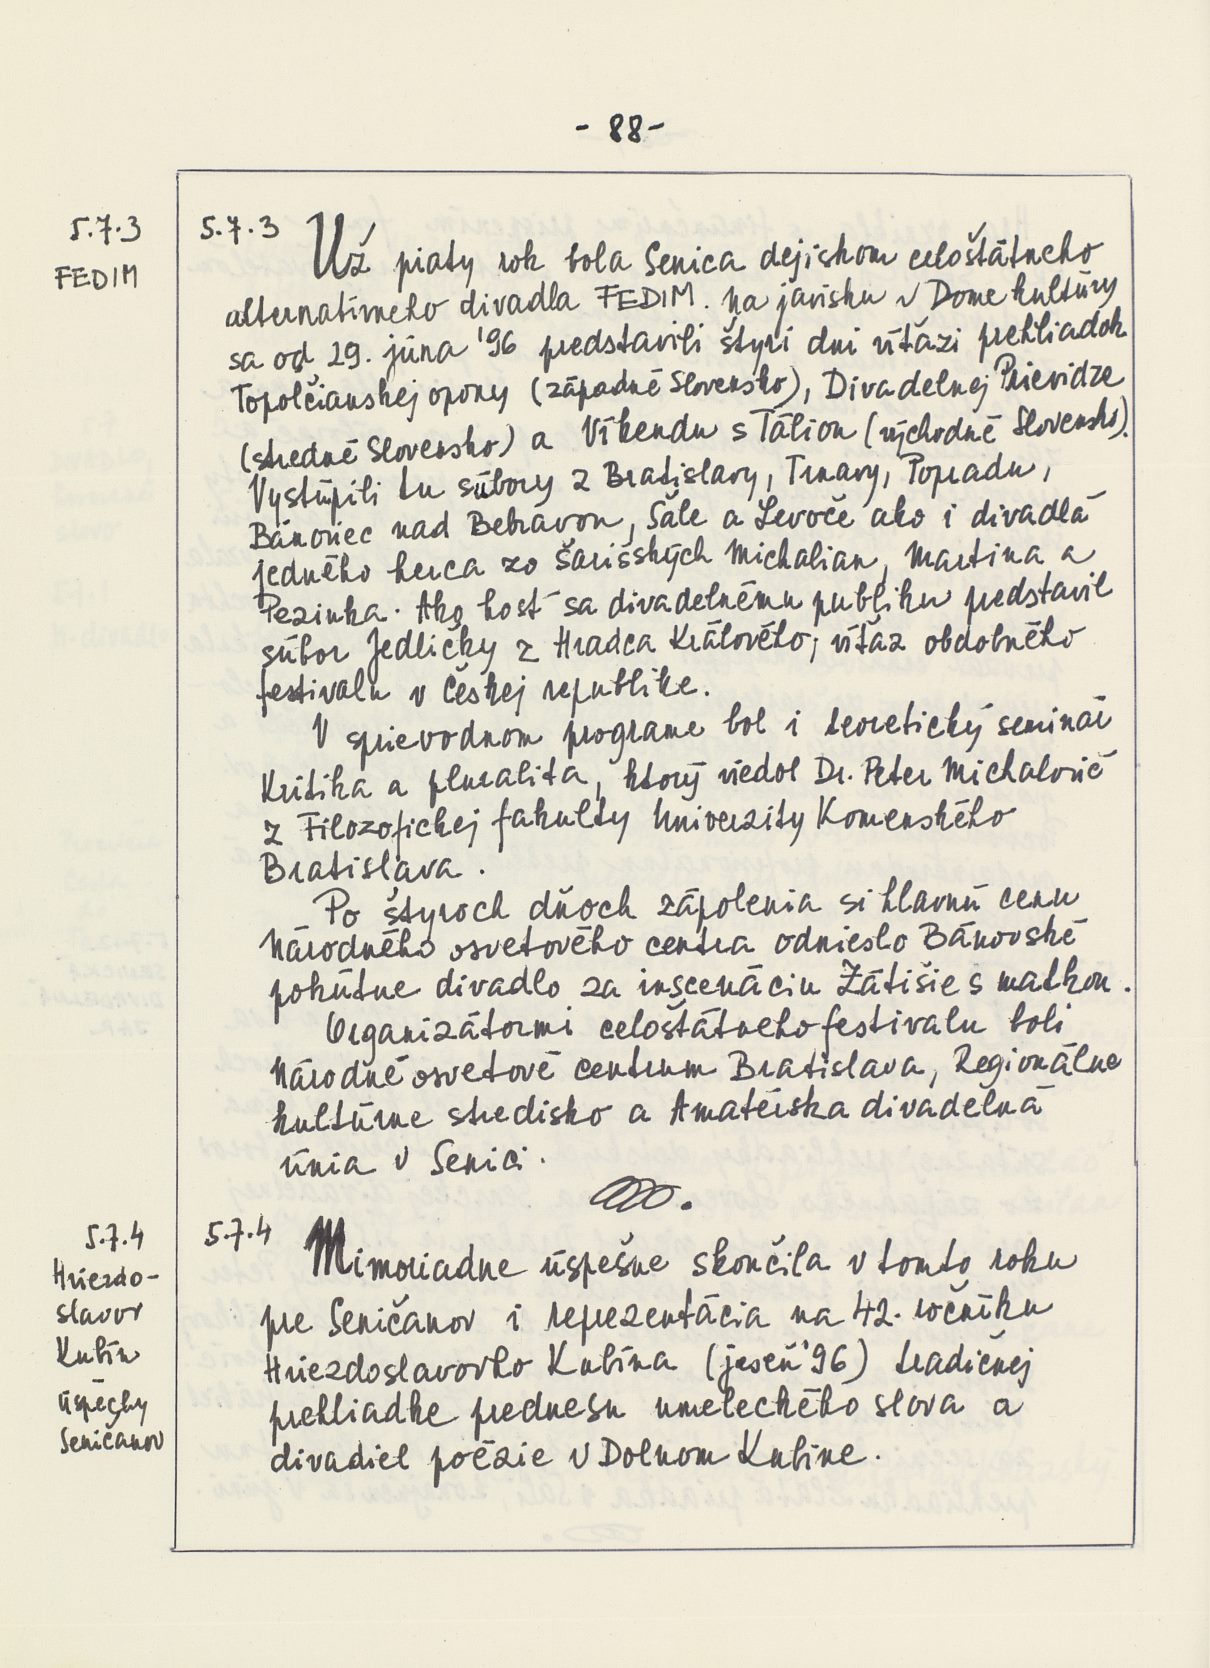 - 88 -
5.7.3
FEDIM
5.7.3 Už piaty rok bola Senica dejiskom celoštátneho
alternatívneho divadla FEDIM. Na javisku v Dome kultúry
sa od 29. júna '96 predstavili štyri dni víťazi prehliadok
Topolčianskej opony (západné Slovensko), Divadelnej Prievidze
(stredné Slovensko) a Víkendu s Táliou (východné Slovensko).
Vystúpili tu súbory z Bratislavy, Trnavy, Popradu,
Bánoviec nad Bebravou, Šale a Levoče ako i divadlá
jedného herca zo Šarišských Michalian, Martina a
Pezinka. Ako hosť sa divadelnému publiku predstavil
súbor Jedličky z Hradca Králového, víťaz obdobného
festivalu v Českej republike.
V sprievodnom programe bol i teoretický seminár
Kritika a pluralita, ktorý viedol Dr. Peter Michalovič
z Filozofickej fakulty Univerzity Komenského
Bratislava.
Po štyroch dňoch zápolenia si hlavnú cenu
Národného osvetového centra odnieslo Bánovské
pokútne divadlo za inscenáciu Zátišie s matkou.
Organizátormi celoštátneho festivalu boli
Národné osvetové centrum Bratislava, Regionálne
kultúrne stredisko a Amatérska divadelná
únia v Senici.
5.7.4
Hviezdo-
slavov
Kubín
úspechy
Seničanov
5.7.4 Mimoriadne úspešne skončila v tomto roku
pre Seničanov i reprezentácia na 42. ročníku
Hviezdoslavovho Kubína (jeseň '96) tradičnej
prehliadke prednesu umeleckého slova a
divadiel poézie v Dolnom Kubíne.